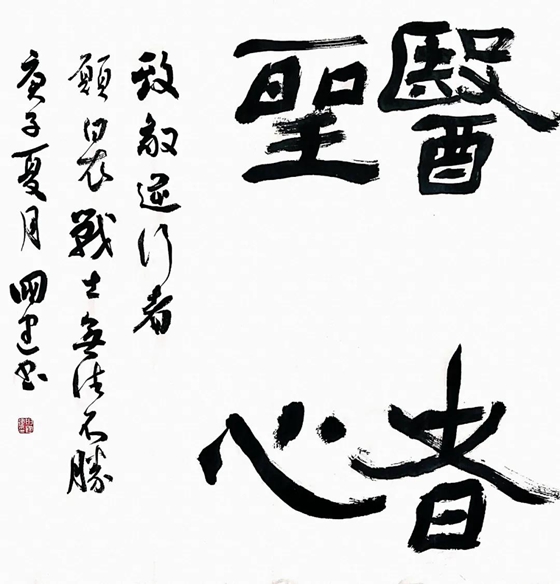 醫者
聖心
致敬逆行者
願白衣戰士無往不勝
庚子夏月國建書